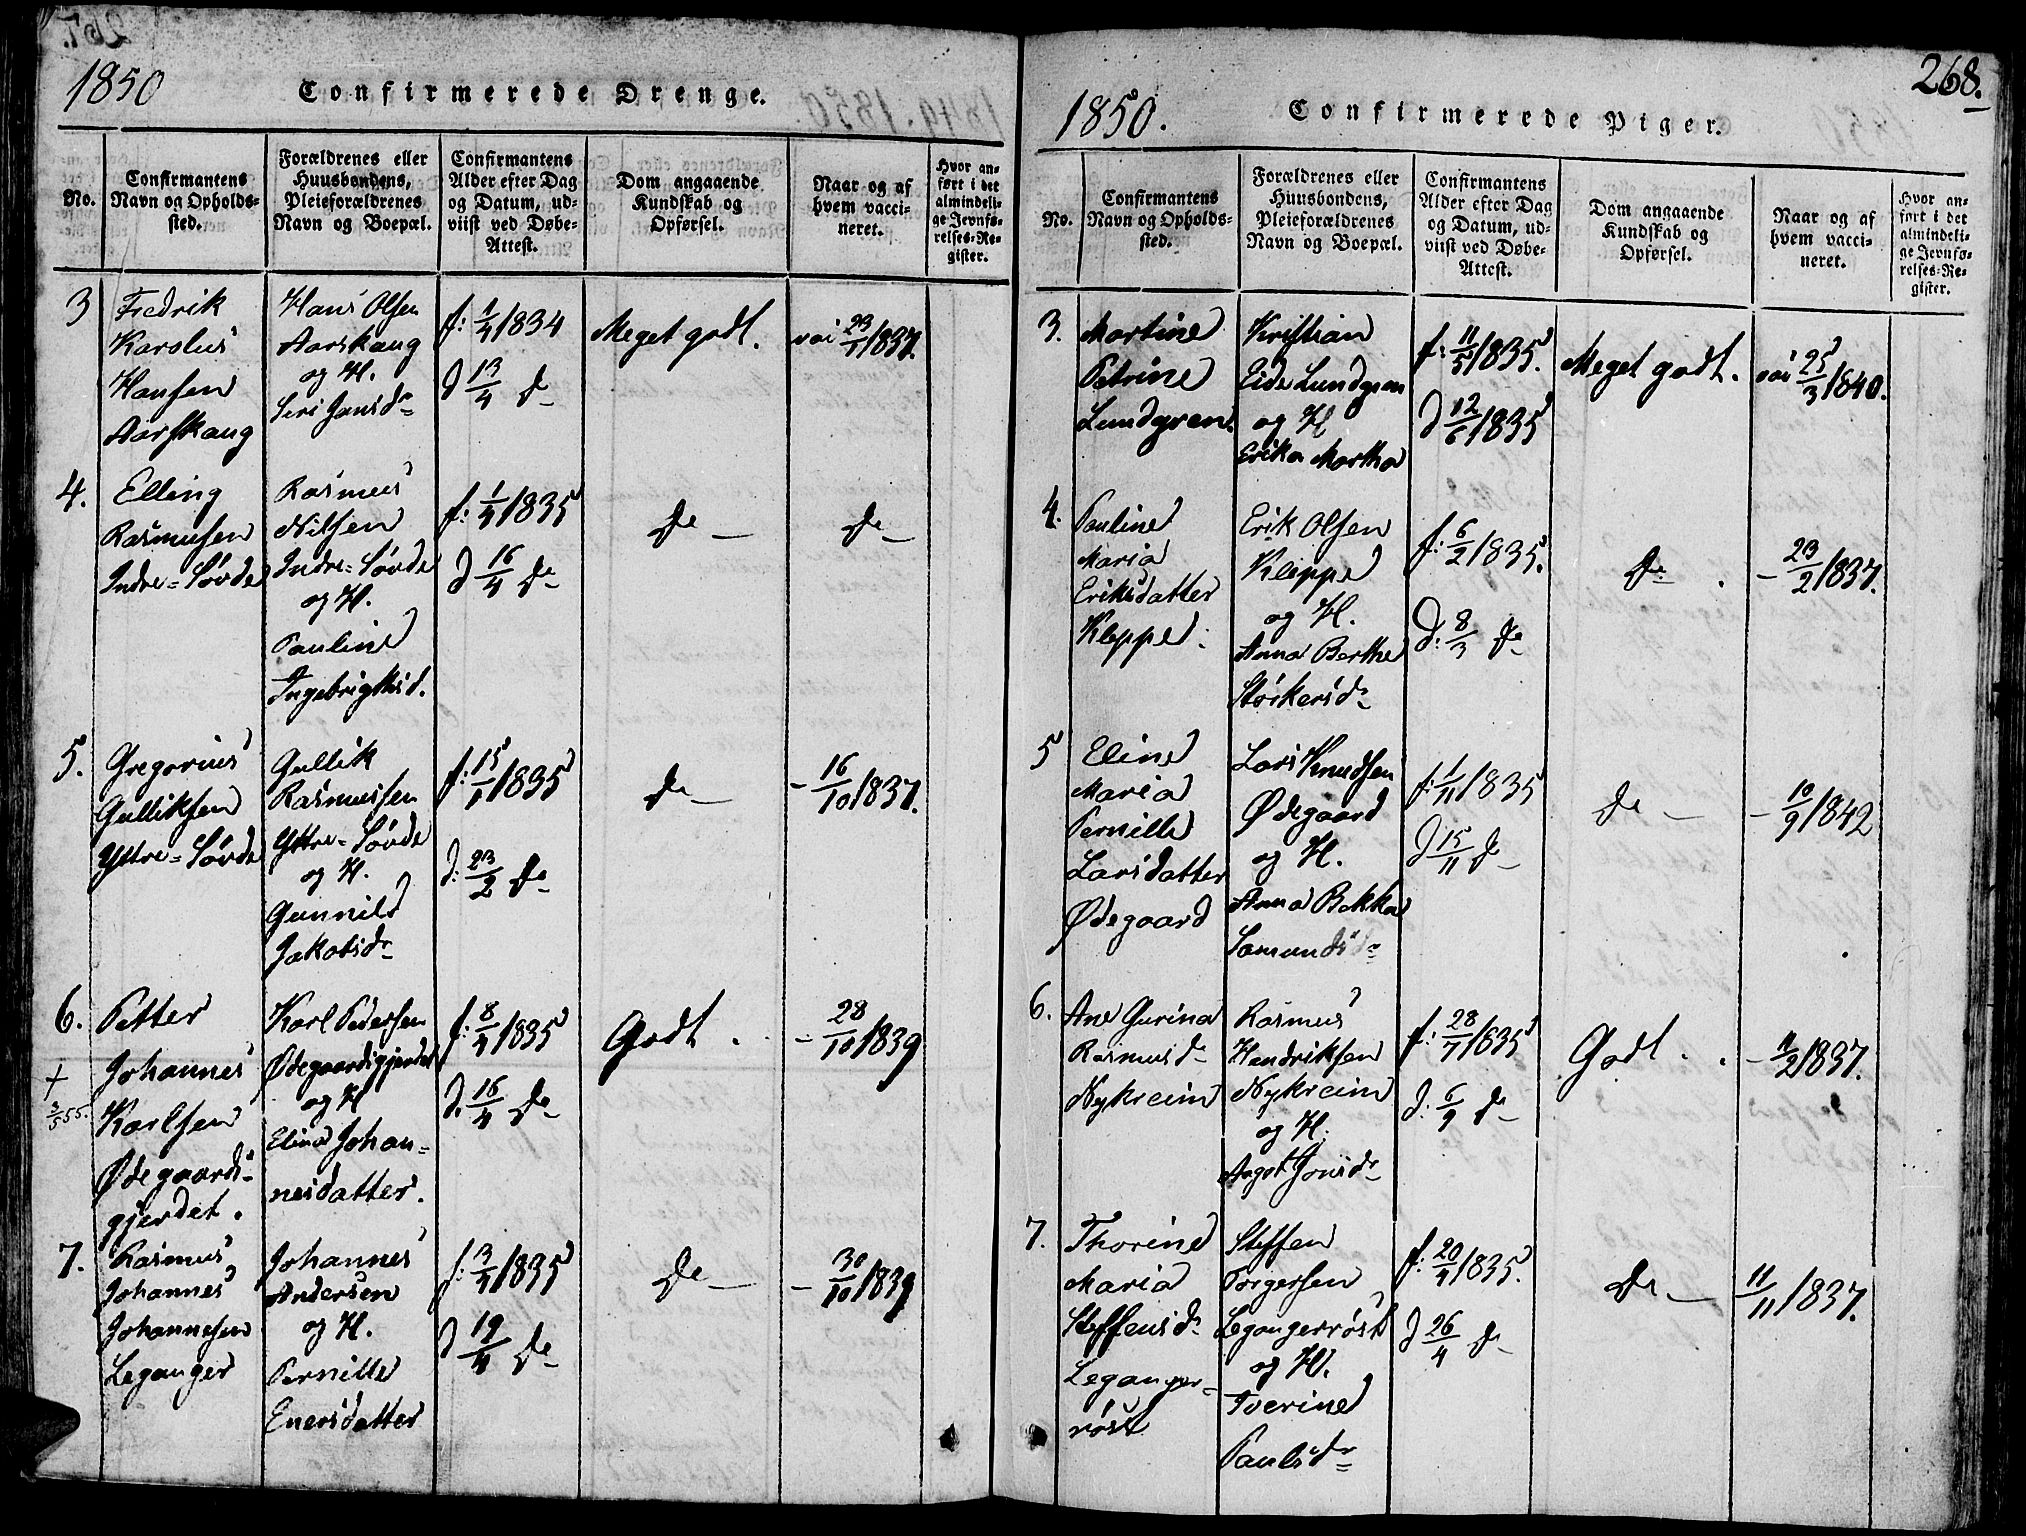 1850
Confirmerede Drenge.
No.
Confirmantens Navn og Opholds-sted.
Forældrenes eller Huusbondens, Pleieforældrenes Navn og Boepæl.
Confirmantens Alder efter Dag og Datum, ud-viist ved Døbe-Attest.
Dom angaaende Kundskab og Opførsel.
Naar og af hvem vacci-neret.
Hvor an-ført i det almindeli-ge Jevnfø-relses-Re-gister.
3
Fredrik
Karolus
Hansen
Aarskaug
Hans Olsen
Aarskaug
og H.
Seri Jansdr
f: 1/4 1834
d 13/4 do
Meget godt.
vac 23/1 1837.
4.
Elling
Rasmusen
Indre=Søvde
Rasmus
Nilsen
Indre=Søvde
og H.
Pauline
Ingebrigtsd.
f: 1/4 1835
d 16/4 do
do
do
5.
Gregorius
Gulliksen
Yttre=Søvde
Gullik
Rasmussen
Yttre=Søvde
og H.
Gunnild
Jakobsdr
f: 15/1 1835
d: 23/2 do
do
- 16/10 1837.
6.
+
2/5 55.
Petter
Johannes
Karlsen
Ødegaards-
gjerdet.
Karl Pedersen
Ødegaardsgjerdet
og H
Elina Johan-
nesdatter.
f: 8/4 1835
d. 16/4 do
Godt.
- 28/10 1839
7.
Rasmus
Johannes
Johannesen
Leganger
Johannes
Andersen
og H.
Pernille
Enersdatter
f: 3/4 1835
d 19/4 do
do
- 30/10 1839
268.
1850.
Confirmerede Piger.
No.
Confirmantens Navn og Opholds-sted.
Forældrenes eller Huusbondens, Pleieforældrenes Navn og Boepæl.
Confirmantens Alder efter Dag og Datum, ud-viist ved Døbe-Attest.
Dom angaaende Kundskab og Opførsel.
Naar og af hvem vacci-neret.
Hvor an-ført i det almindeli-ge Jevnfø-relses-Re-gister.
3.
Martine
Petrine
Lundgren.
Kristian
Eide Lundgren
og H
Erika Martha
f: 11/5 1835.
d 12/6 1835
Meget godt.
vac 25/3 1840.
4.
Pauline
Maria
Eriksdatter
Kleppe.
Erik Olsen
Kleppe
og H.
Anna Berthe
Størkersdr
f: 6/2 1835.
d: 8/3 do
do.
- 23/2 1837.
5
Eline
Maria
Pernille
Larsdatter
Ødegaard
Lars Knudsen
Ødegaard
og H.
Anna Bekka
Samundsdr
f: 1/11 1835
d 15/11 do
do
- 10/9 1842
6.
Ane Gurina
Rasmusdr
Nykreim
Rasmus
Hendriksen
Nykreim
og H.
Aagot Jonsdr
f: 28/7 1835
d: 6/9 do
Godt.
- 11/2 1837.
7.
Thorine
Maria
Steffensdr
Leganger-
røst
Steffen
Torgersen
Legangerrøst
og H.
Iverine
Paulsdr
f: 20/4 1835.
d 26/4 do
do
11/11 1837.